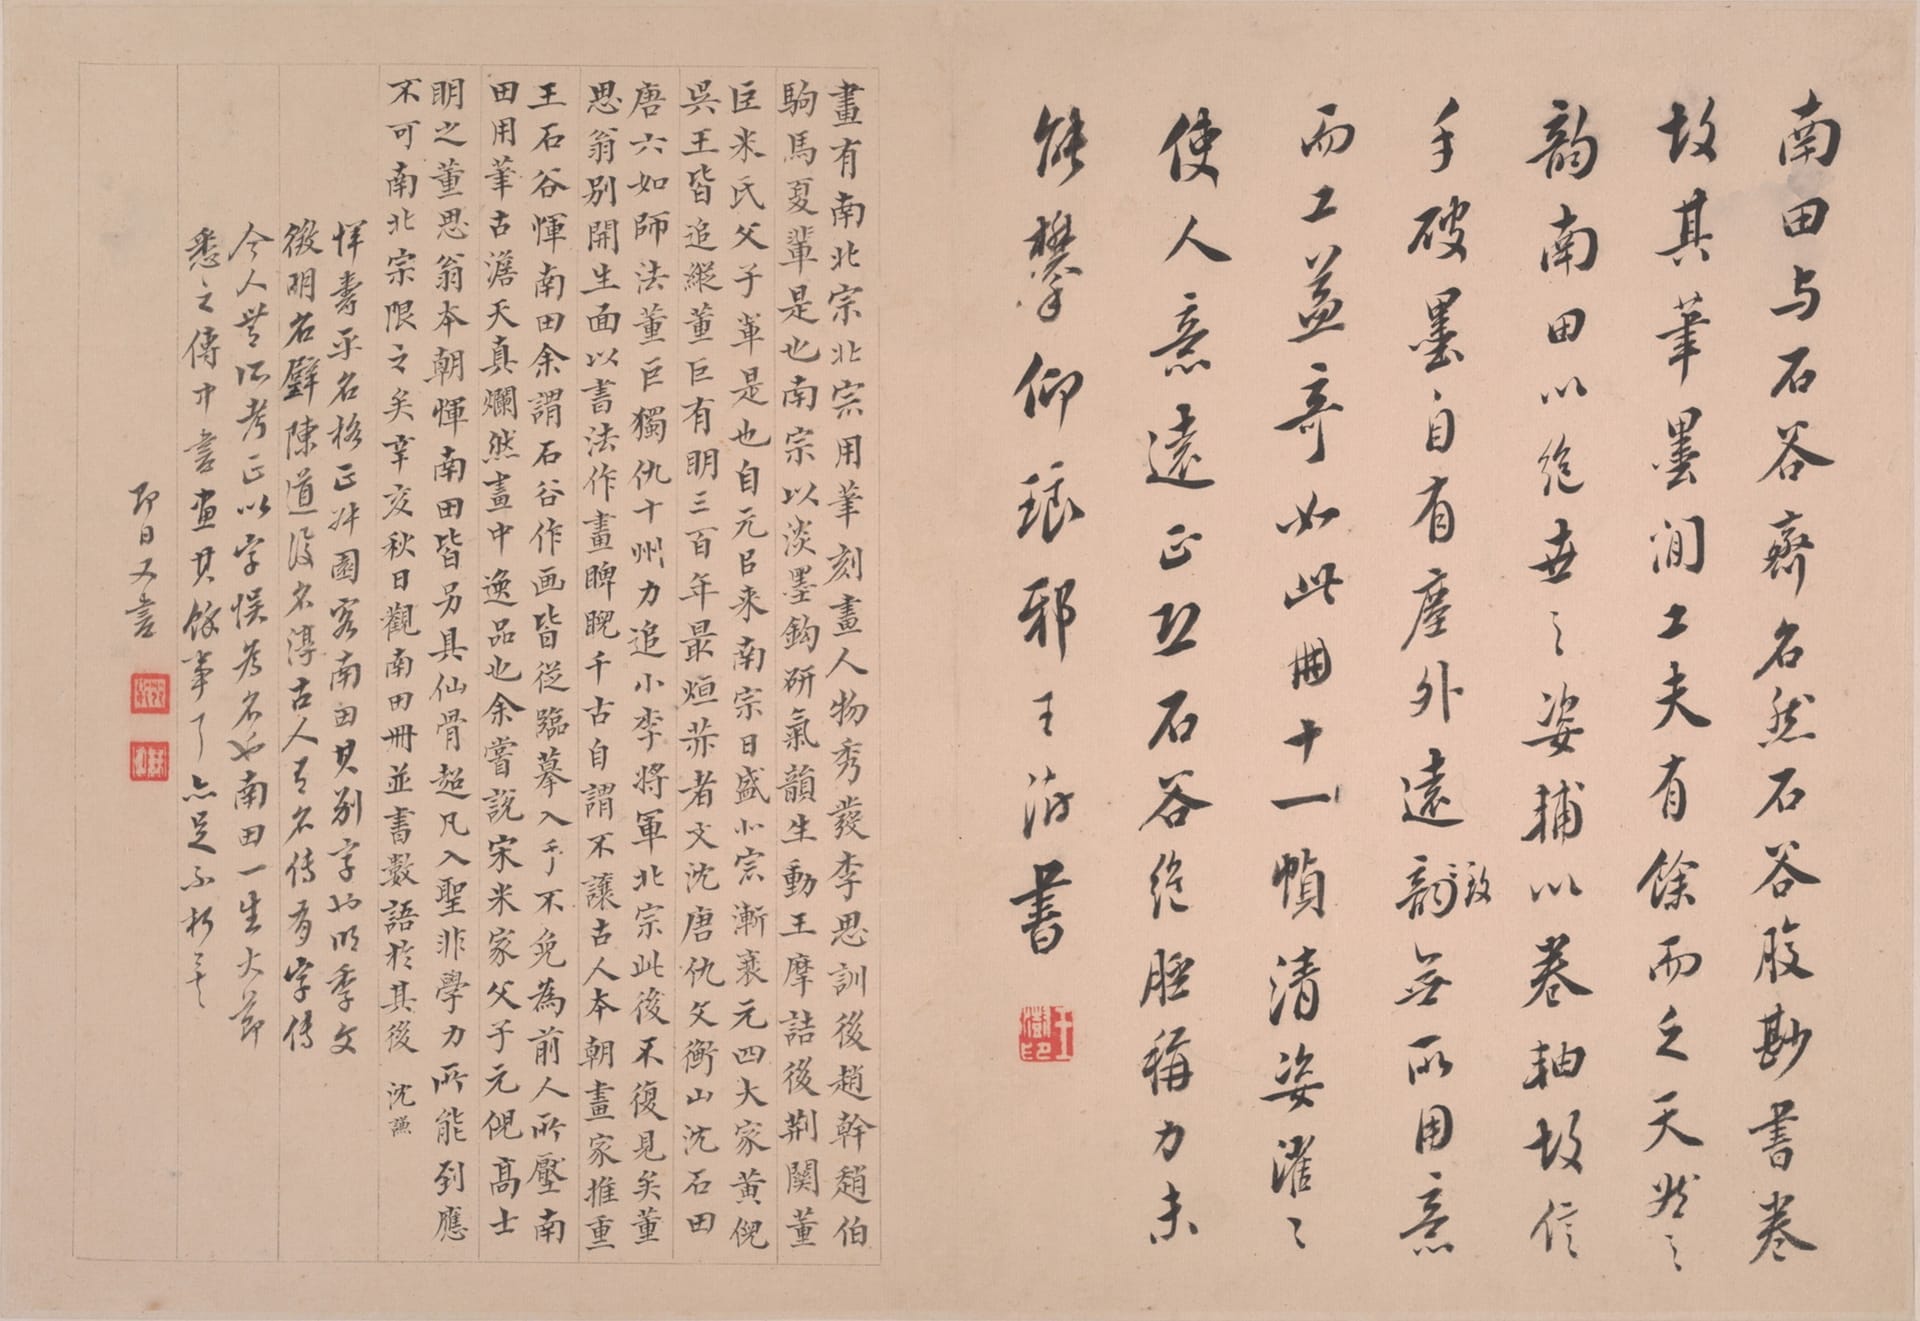 南田与石谷齊名然石谷胶尠書卷
故其筆墨間工夫有餘而乏天然之
韵南田以絶世之姿輔以卷軸故信
手破墨自有塵外遠韵致無所用意
而工益奇如此冊十一幀清姿濯濯
使人意遠正恐石谷絶脰稱力未
能攀仰琅邪王澍書
畫有南北宗北宗用筆刻畫人物秀發李思訓後趙幹趙伯
駒馬夏輩是也南宗以淡墨鈎研氣韻生動王摩詰後荆關董
巨米氏父子輩是也自元以來南宗日盛北宗漸衰元四大家黃倪
吳王皆追縱董巨有明三百年最烜赤者文沈唐仇文衡山沈石田
唐六如師法董巨獨仇十州力追小李將軍北宗此後不復見矣董
思翁別開生面以書法作畫睥睨千古自謂不讓古人本朝畫家推重
王石谷惲南田余謂石谷作画皆從臨摹入手不免為前人所壓南
田用筆古澹天真爛然畫中逸品也余嘗説宋米家父子元倪高士
明之董思翁本朝惲南田皆另具仙骨超凡入聖非學力所能到應
不可南北宗限之矣辛亥秋日觀南田冊並書數語於其後 沈謙
惲壽平名格正叔園客南田其別字也明季文
徵明名璧陳道復名淳古人有名傳有字傳
今人無所考正以字悞為名也南田一生大節
悉之傳中書畫其餘事了亦足不朽矣
即日又書
王澍印